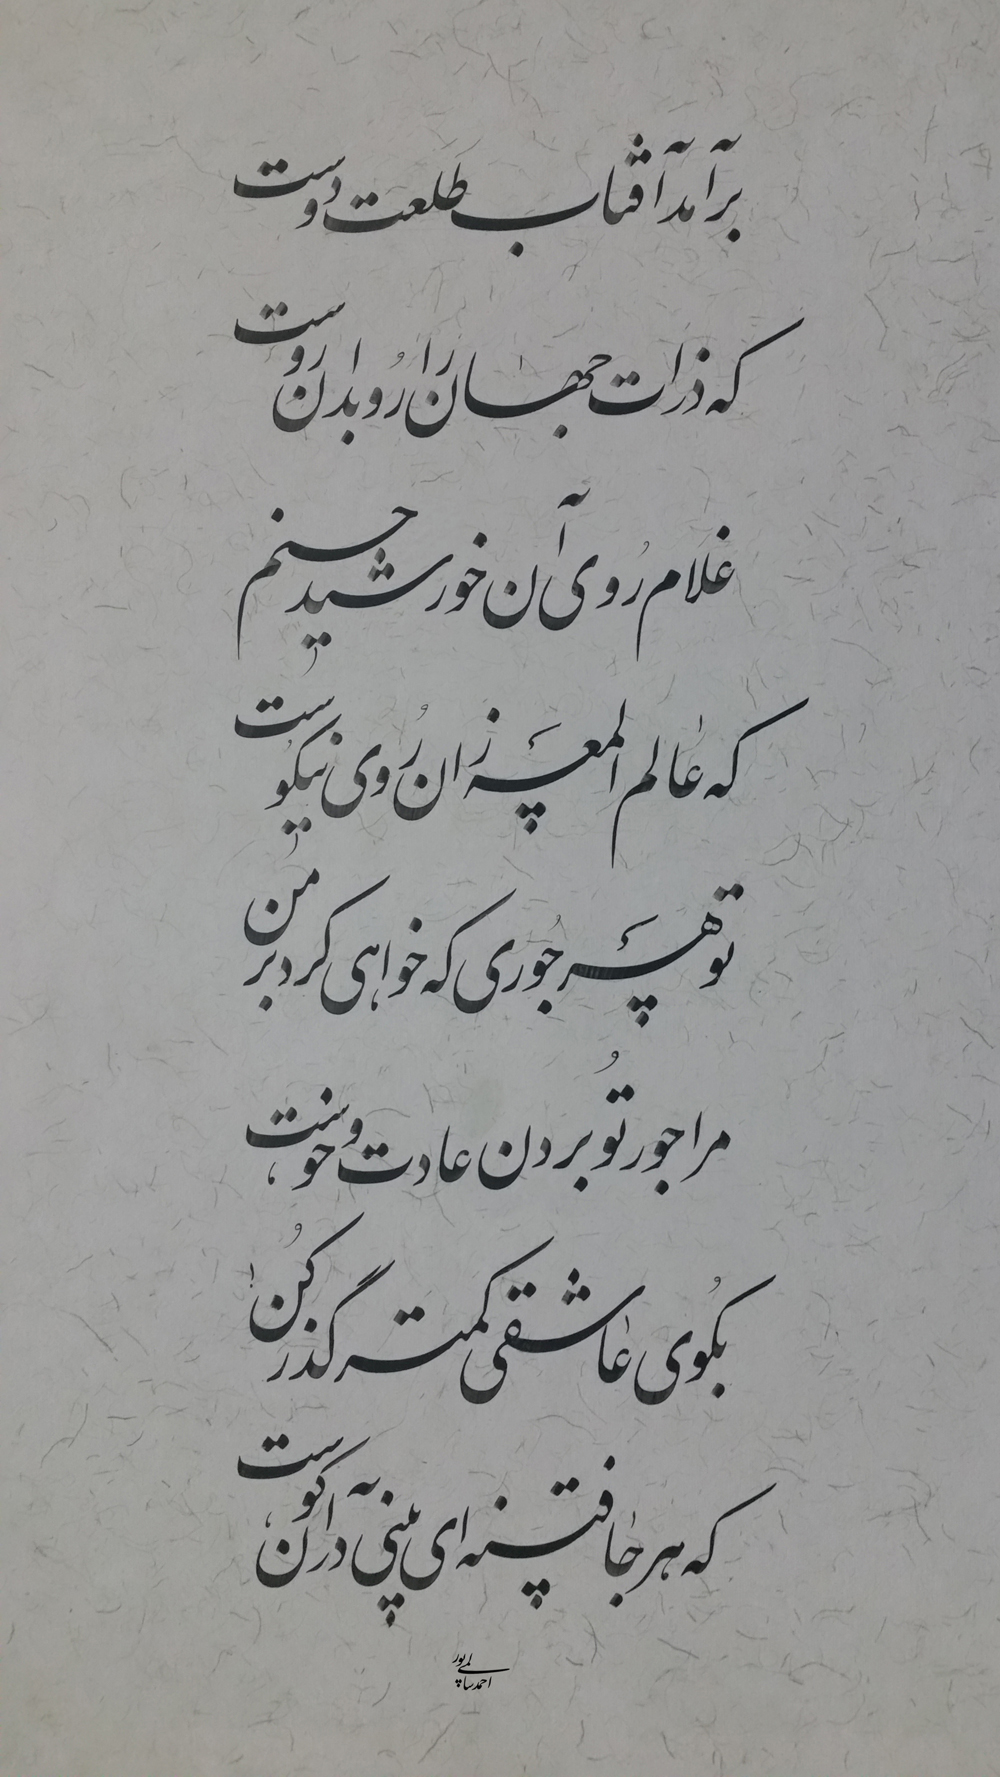 برآمد آفتاب طلعت دوست
که ذرات جهان را رُو بدان روست
غلام رُوی آن خورشید حسنم
که عالم لمعهٔ زان رُوی نیکوست
تو هر جُوری که خواهی کرد بر من
مرا جور تُو بردن عادت و خوست
بکُوی عاشقی کمتر گذر کُن
که هر جا فتنه ای بینی در آن کوست
احمد سالمی پور